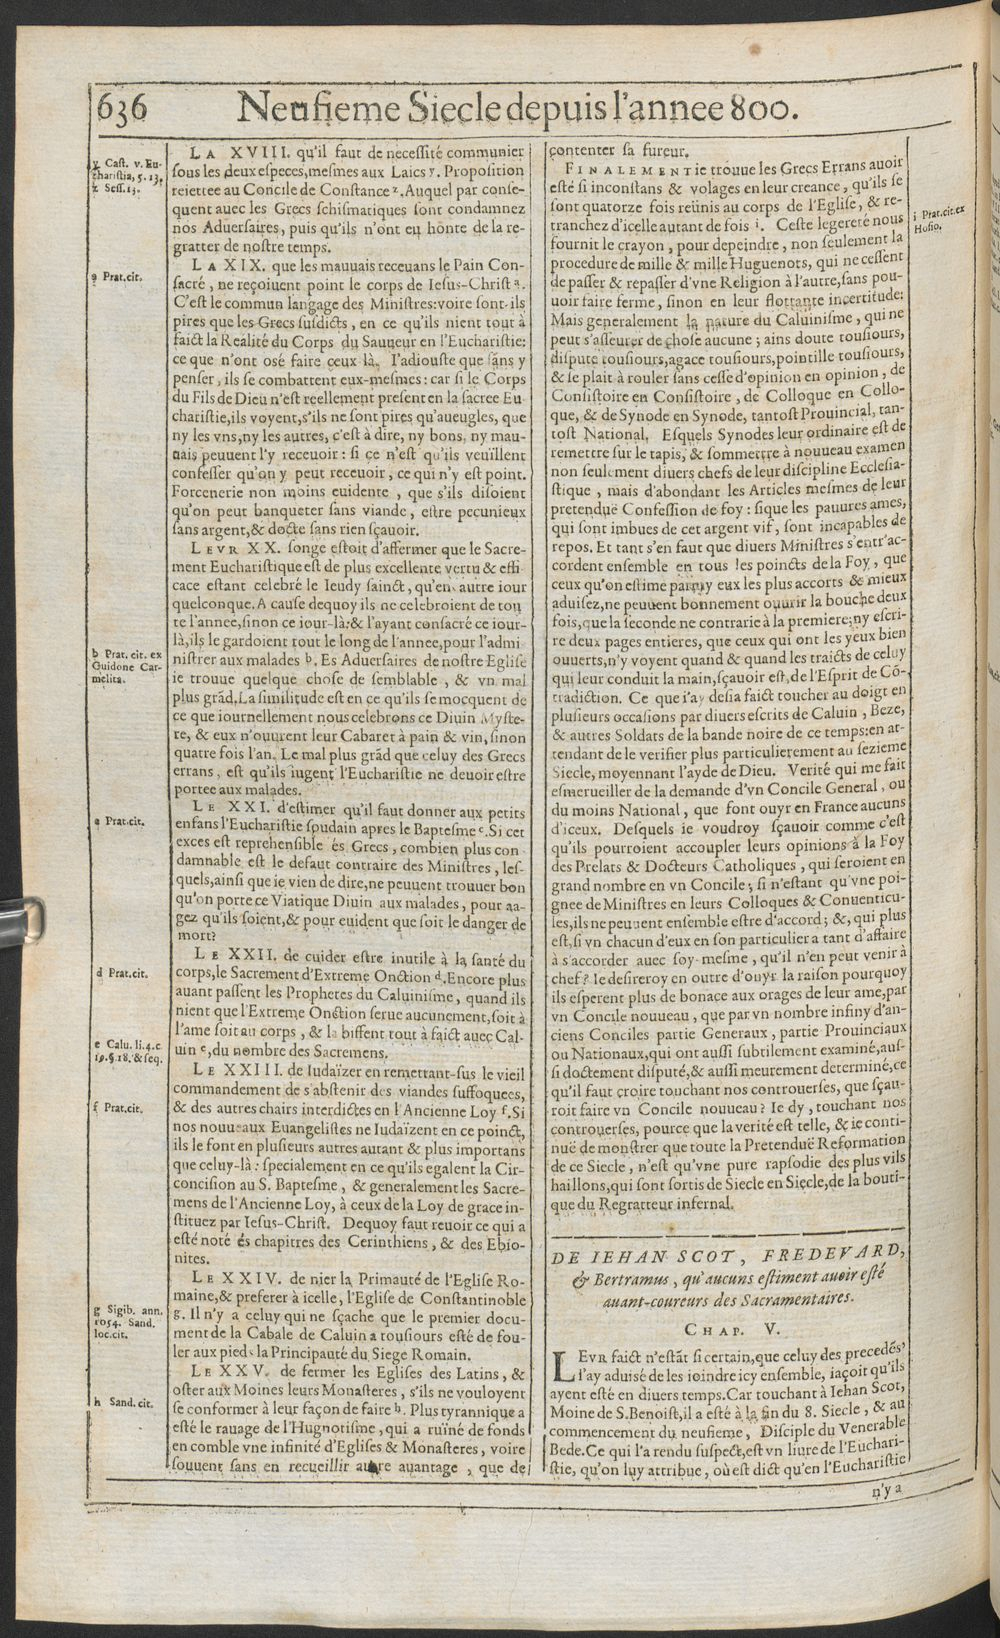 636 Neufieme Siecle depuis l'annee 800.
y Cast. v. Eu-
charistia, 5.13.
z Sess.13.
a Prat.cit.
b Prat. cit. ex
Guidone Car-
melita.
c Prat.cit.
d Prat.cit.
e Calu. li.4.c.
19.§.18.&seq.
f Prat.cit.
g Sigib. ann.
1054. Sand.
loc.cit.
h Sand.cit.
LA XVIII. qu'il faut de necessité communier
sous les deux especes,mesmes aux Laics y. Proposition
reiettee au Concile de Constance z.Auquel par conse-
quent auec les Grecs schismatiques sont condamnez
nos Aduersaires, puis qu'ils n'ont eu honte de la re-
gratter de nostre temps.
LA XIX. que les mauuais receuans le Pain Con-
sacré, ne reçoiuent point le corps de Iesus-Christ a.
C'est le commun langage des Ministres:voire sont-ils
pires que les Grecs susdicts, en ce qu'ils nient tout à
faict la Realité du Corps du Sauueur en l'Eucharistie:
ce que n'ont osé faire ceux là. I'adiouste que sans y
penser, ils se combattent eux-mesmes: car si le Corps
du Fils de Dieu n'est reellement present en la sacree Eu
charistie,ils voyent,s'ils ne sont pires qu'aueugles, que
ny les vns,ny les autres, c'est à dire, ny bons, ny mau-
uais peuuent l'y receuoir: si ce n'est qu'ils veuillent
confesser qu'on y peut receuoir, ce qui n'y est point.
Forcenerie non moins euidente, que s'ils disoient
qu'on peut banqueter sans viande, estre pecunieux
sans argent,& docte sans rien sçauoir.
LEVR XX. songe estoit d'affermer que le Sacre-
ment Eucharistique est de plus excellente vertu & effi
cace estant celebré le Ieudy sainct, qu'en autre iour
quelconque. A cause dequoy ils ne celebroient de tou
te l'annee,sinon ce iour-là:& l'ayant consacré ce iour-
là,ils le gardoient tout le long de l'annee,pour l'admi
nistrer aux malades b. Es Aduersaires de nostre Eglise
ie trouue quelque chose de semblable, & vn mal
plus grãd. La similitude est en ce qu'ils se mocquent de
ce que iournellement nous celebrons ce Diuin Myste-
re, & eux n'ouurent leur Cabaret à pain & vin, sinon
quatre fois l'an. Le mal plus grãd que celuy des Grecs
errans, est qu'ils iugent l'Eucharistie ne deuoir estre
portee aux malades.
LE XXI. d'estimer qu'il faut donner aux petits
enfans l'Eucharistie soudain apres le Baptesme c.Si cet
exces est reprehensible és Grecs, combien plus con-
damnable est le defaut contraire des Ministres, les-
quels,ainsi que ie vien de dire,ne peuuent trouuer bon
qu'on porte ce Viatique Diuin aux malades, pour aa-
gez qu'ils soient,& pour euident que soit le danger de
mort?
LE XXII. de cuider estre inutile à la santé du
corps,le Sacrement d'Extreme Onction d.Encore plus
auant passent les Prophetes du Caluinisme, quand ils
nient que l'Extreme Onction serue aucunement,soit à
l'ame soit au corps, & la biffent tout à faict auec Cal-
uin e,du nombre des Sacremens.
LE XXIII. de Iudaïzer en remettant-sus le vieil
commandement de s'abstenir des viandes suffoquees,
& des autres chairs interdictes en l'Ancienne Loy f.Si
nos nouueaux Euangelistes ne Iudaïzent en ce poinct,
ils le font en plusieurs autres autant & plus importans
que celuy-là: specialement en ce qu'ils egalent la Cir-
concision au S. Baptesme, & generalement les Sacre-
mens de l'Ancienne Loy, à ceux de la Loy de grace in-
stituez par Iesus-Christ. Dequoy faut reuoir ce qui a
esté noté és chapitres des Cerinthiens, & des Ebio-
nites.
LE XXIV. de nier la Primauté de l'Eglise Ro-
maine,& preferer à icelle, l'Eglise de Constantinoble
g. Il n'y a celuy qui ne sçache que le premier docu-
ment de la Cabale de Caluin a tousiours esté de fou-
ler aux pieds la Principauté du Siege Romain.
LE XXV. de fermer les Eglises des Latins, &
oster aux Moines leurs Monasteres, s'ils ne vouloyent
se conformer à leur façon de faire h. Plus tyrannique a
esté le rauage de l'Hugnotisme, qui a ruïné de fonds
en comble vne infinité d'Eglises & Monasteres, voire
souuent sans en recueillir autre auantage, que de
contenter sa fureur.
FINALEMENT ie trouue les Grecs Errans auoir
esté si inconstans & volages en leur creance, qu'ils se
sont quatorze fois reünis au corps de l'Eglise, & re-
tranchez d'icelle autant de fois i. Ceste legereté nous
fournit le crayon, pour depeindre, non seulement la
procedure de mille & mille Huguenots, qui ne cessent
de passer & repasser d'vne Religion à l'autre,sans pou-
uoir faire ferme, sinon en leur flottante incertitude:
Mais generalement la nature du Caluinisme, qui ne
peut s'asseurer de chose aucune; ains doute tousiours,
dispute tousiours,agace tousiours,pointille tousiours,
& se plait à rouler sans cesse d'opinion en opinion, de
Consistoire en Consistoire, de Colloque en Collo-
que, & de Synode en Synode, tantost Prouincial, tan-
tost National. Esquels Synodes leur ordinaire est de
remettre sur le tapis, & sommettre à nouueau examen
non seulement diuers chefs de leur discipline Ecclesia-
stique, mais d'abondant les Articles mesmes de leur
pretenduë Confession de foy: sique les pauures ames,
qui sont imbues de cet argent vif, sont incapables de
repos. Et tant s'en faut que diuers Ministres s'entr'ac-
cordent ensemble en tous les poincts de la Foy, que
ceux qu'on estime parmy eux les plus accorts & mieux
aduisez,ne peuuent bonnement ouurir la bouche deux
fois,que la seconde ne contrarie à la premiere;ny escri-
re deux pages entieres, que ceux qui ont les yeux bien
ouuerts,n'y voyent quand & quand les traicts de celuy
qui leur conduit la main,sçauoir est,de l'Esprit de Cõ-
tradiction. Ce que i'ay desia faict toucher au doigt en
plusieurs occasions par diuers escrits de Caluin, Beze,
& autres Soldats de la bande noire de ce temps:en at-
tendant de le verifier plus particulierement au sezieme
Siecle, moyennant l'ayde de Dieu. Verité qui me fait
esmerueiller de la demande d'vn Concile General, ou
du moins National, que font ouyr en France aucuns
d'iceux. Desquels ie voudroy sçauoir comme c'est
qu'ils pourroient accoupler leurs opinions à la Foy
des Prelats & Docteurs Catholiques, qui seroient en
grand nombre en vn Concile; si n'estant qu'vne poi-
gnee de Ministres en leurs Colloques & Conuenticu-
les,ils ne peuuent ensemble estre d'accord; &, qui plus
est,si vn chacun d'eux en son particulier a tant d'affaire
à s'accorder auec soy-mesme, qu'il n'en peut venir à
chef? Ie desireroy en outre d'ouyr la raison pourquoy
ils esperent plus de bonace aux orages de leur ame,par
vn Concile nouueau, que par vn nombre infiny d'an-
ciens Conciles partie Generaux, partie Prouinciaux
ou Nationaux,qui ont aussi subtilement examiné,aus-
si doctement disputé,& aussi meurement determiné,ce
qu'il faut croire touchant nos controuerses, que sçau-
roit faire vn Concile nouueau? Ie dy, touchant nos
controuerses, pource que la verité est telle, & ie conti-
nuë de monstrer que toute la Pretenduë Reformation
de ce Siecle, n'est qu'vne pure rapsodie des plus vils
haillons,qui sont sortis de Siecle en Siecle,de la bouti-
que du Regratteur infernal.
i Prat.cit.ex
Hosio.
DE IEHAN SCOT, FREDEVARD,
& Bertramus, qu'aucuns estiment auoir esté
auant-coureurs des Sacramentaires.
CHAP. V.
LEVR faict n'estãt si certain,que celuy des precedés,
l'ay aduisé de les ioindre icy ensemble, iaçoit qu'ils
ayent esté en diuers temps.Car touchant à Iehan Scot,
Moine de S.Benoist,il a esté à la fin du 8. Siecle, & au
commencement du neufieme, Disciple du Venerable
Bede.Ce qui l'a rendu suspect,est vn liure de l'Euchari-
stie, qu'on luy attribue, où est dict qu'en l'Eucharistie
n'y a